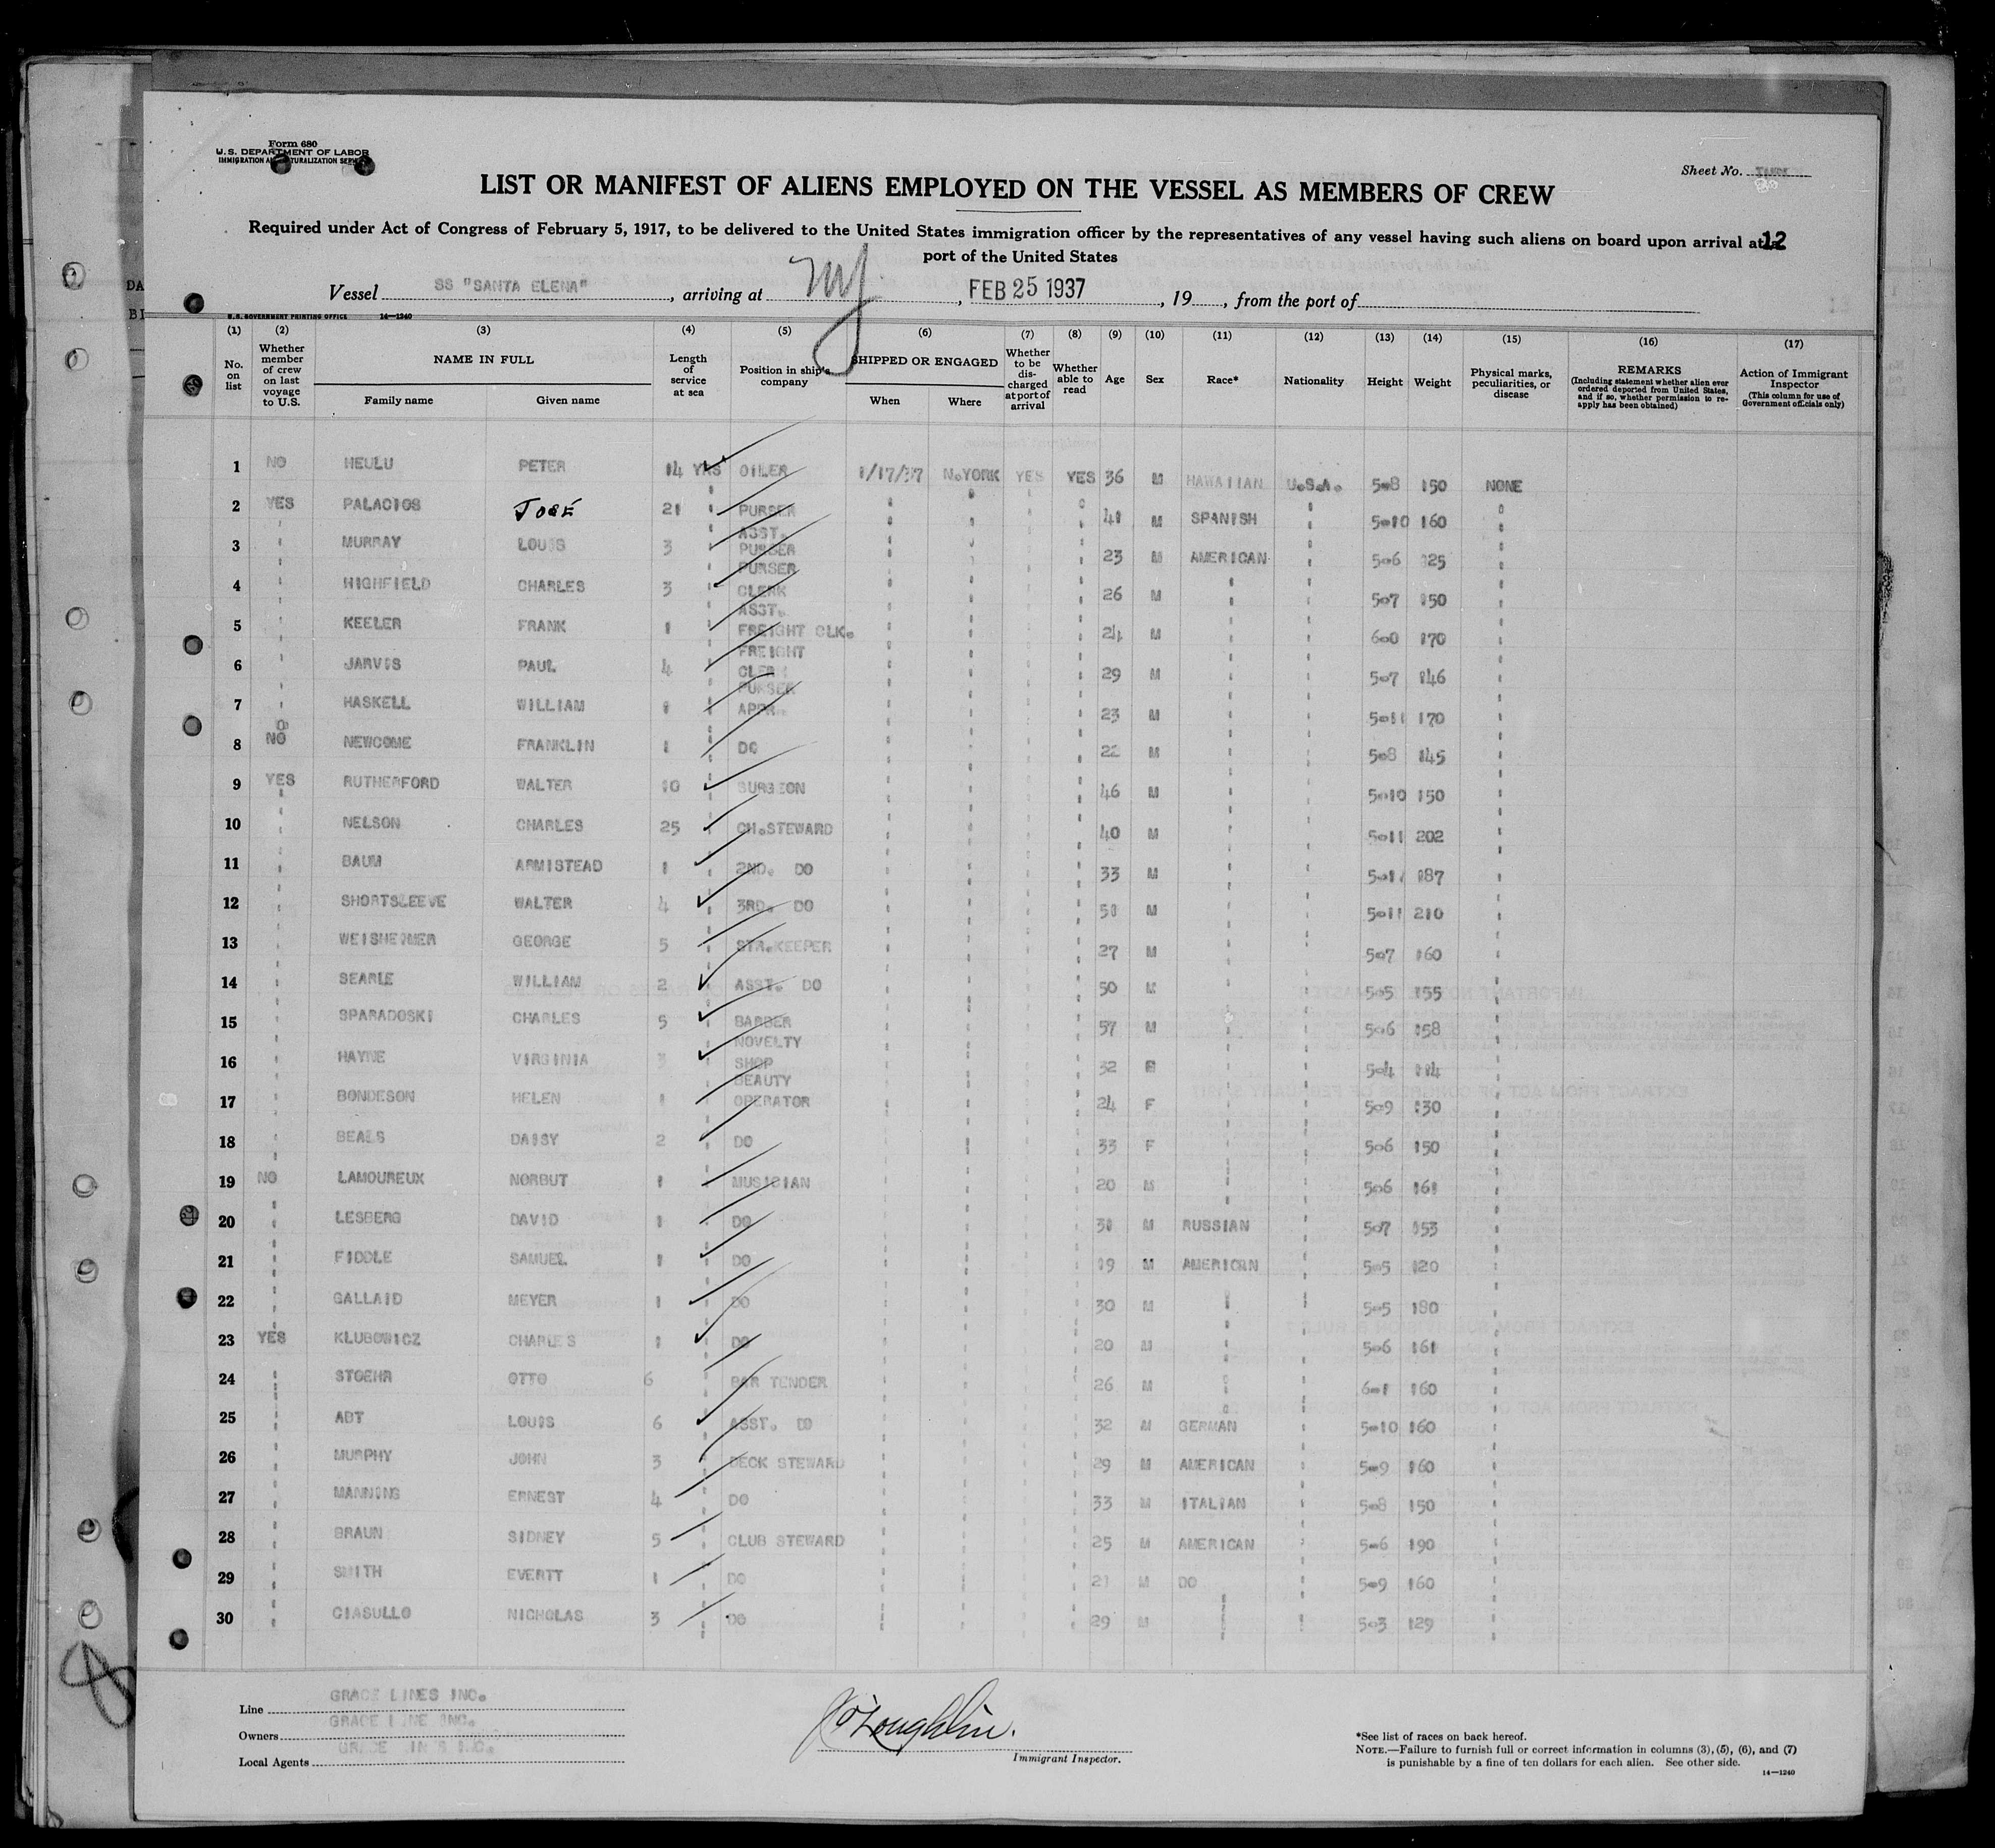 Form 680
U.S. DEPARTMENT OF LABOR
IMMIGRATION AND NATURALIZATION SERVICE
Sheet No.
LIST OR MANIFEST OF ALIENS EMPLOYED ON THE VESSEL AS MEMBERS OF CREW
Required under Act of Congress of February 5, 1917, to be delivered to the United States immigration officer by the representatives of any vessel having such aliens on board upon arrival at a
12
port of the United States
Vessel SS "SANTA ELENA", arriving at NY, FEB 25 1937, 19, from the port of
U.S. GOVERNMENT PRINTING OFFICE 14—1240
(1) (2) (3) (4) (5) (6) (7) (8) (9) (10) (11) (12) (13) (14) (15) (16) (17)
No. on list
Whether member of crew on last voyage to U.S.
NAME IN FULL
Family name Given name
Length of service at sea
Position in ship's company
SHIPPED OR ENGAGED
When Where
Whether to be discharged at port of arrival
Whether able to read
Age Sex Race* Nationality Height Weight
Physical marks, peculiarities, or disease
REMARKS
(Including statement whether alien ever ordered deported from United States, and if so, whether permission to reapply has been obtained)
Action of Immigrant Inspector
(This column for use of Government officials only)
1 NO HEULU PETER 14 YRS OILER 1/17/37 N.YORK YES YES 36 M HAWAIIAN U.S.A. 5-8 150 NONE
2 YES PALACIOS JOSÉ 21 " PURSER " " " " 41 M SPANISH " 5-10 160 "
3 " MURRAY LOUIS 3 " ASST. PURSER " " " " 23 M AMERICAN " 5-6 125 "
4 " HIGHFIELD CHARLES 3 " PURSER CLERK " " " " 26 M " " 5-7 150 "
5 " KEELER FRANK 1 " ASST. FREIGHT CLK. " " " " 24 M " " 6-0 170 "
6 " JARVIS PAUL 4 " FREIGHT CLERK " " " " 29 M " " 5-7 146 "
7 " HASKELL WILLIAM 1 " PURSER APPR. " " " " 23 M " " 5-11 170 "
8 NO NEWCOME FRANKLIN 1 " DO " " " " 22 M " " 5-8 145 "
9 YES RUTHERFORD WALTER 10 " SURGEON " " " " 46 M " " 5-10 150 "
10 " NELSON CHARLES 25 " CH.STEWARD " " " " 40 M " " 5-11 202 "
11 " BAUM ARMISTEAD 1 " 2ND. DO " " " " 33 M " " 5-11 187 "
12 " SHORTSLEEVE WALTER 4 " 3RD. DO " " " " 51 M " " 5-11 210 "
13 " WEISHEIMER GEORGE 5 " STR.KEEPER " " " " 27 M " " 5-7 160 "
14 " SEARLE WILLIAM 2 " ASST. DO " " " " 50 M " " 5-5 155 "
15 " SPARADOSKI CHARLES 5 " BARBER " " " " 57 M " " 5-6 158 "
16 " HAYNE VIRGINIA 3 " NOVELTY SHOP " " " " 32 F " " 5-4 114 "
17 " BONDESON HELEN 1 " BEAUTY OPERATOR " " " " 24 F " " 5-9 130 "
18 " BEALS DAISY 2 " DO " " " " 33 F " " 5-6 150 "
19 NO LAMOUREUX NORBUT 1 " MUSICIAN " " " " 20 M " " 5-6 161 "
20 " LESBERG DAVID 1 " DO " " " " 31 M RUSSIAN " 5-7 153 "
21 " FIDDLE SAMUEL 1 " DO " " " " 19 M AMERICAN " 5-5 120 "
22 " GALLAID MEYER 1 " DO " " " " 30 M " " 5-5 180 "
23 YES KLUBOWICZ CHARLES 1 " DO " " " " 20 M " " 5-6 161 "
24 " STOEHR OTTO 6 BAR TENDER " " " " 26 M " " 6-1 160 "
25 " ADT LOUIS 6 " ASST. DO " " " " 32 M GERMAN " 5-10 160 "
26 " MURPHY JOHN 3 " DECK STEWARD " " " " 29 M AMERICAN " 5-9 160 "
27 " MANNING ERNEST 4 " DO " " " " 33 M ITALIAN " 5-8 150 "
28 " BRAUN SIDNEY 5 " CLUB STEWARD " " " " 25 M AMERICAN " 5-6 190 "
29 " SMITH EVERTT 1 " DO " " " " 21 M DO " 5-9 160 "
30 " CIASULLO NICHOLAS 3 " DO " " " " 29 M " " 5-3 129 "
Line GRACE LINES INC.
Owners GRACE LINE INC.
Local Agents GRACE LINES INC.
J O'Loughlin.
Immigrant Inspector.
*See list of races on back hereof.
NOTE.—Failure to furnish full or correct information in columns (3), (5), (6), and (7)
is punishable by a fine of ten dollars for each alien. See other side.
14—1240
8